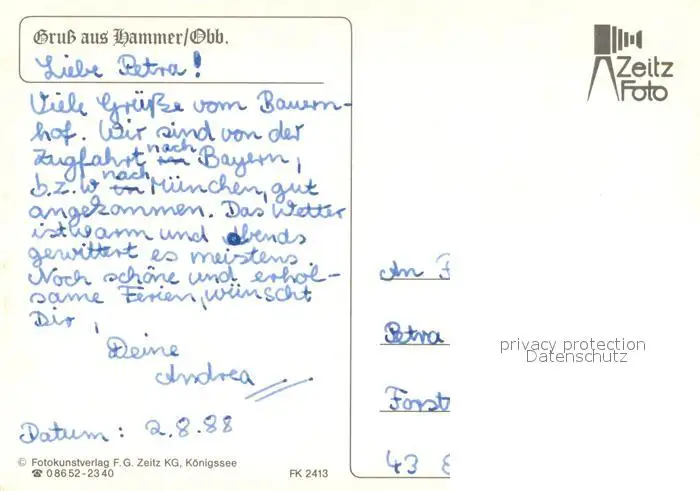 Gruß aus Hammer/Obb.
Liebe Petra!
Viele Grüße vom Bauern-
hof. Wir sind von der
Zugfahrt nach Bayern,
b.z.w nach München, gut
angekommen. Das Wetter
ist warm und Abends
gewittert es meistens.
Noch schöne und erhol-
same Ferien, wünscht
Dir,
Deine
Andrea
Datum: 2.8.88
© Fotokunstverlag F.G. Zeitz KG, Königssee
☎ 08652-2340
FK 2413
Zeitz
Foto
An F
Petra
Forst
43
privacy protection
Datenschutz